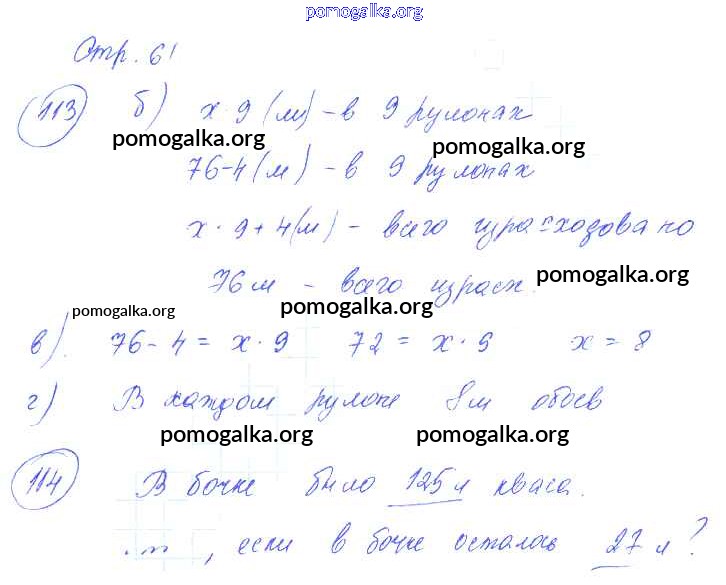 pomogalka.org
Стр. 61
113 б) x·9 (м) - в 9 рулонах
pomogalka.org pomogalka.org
76-4 (м) - в 9 рулонах
x·9+4(м) - всего израсходовано
76м - всего израсх.
pomogalka.org pomogalka.org pomogalka.org
в). 76-4 = x·9 72 = x·9 x = 8
г) В каждом рулоне 8м обоев
pomogalka.org pomogalka.org
114 В бочке было 125 л кваса.
, если в бочке осталось 27 л?